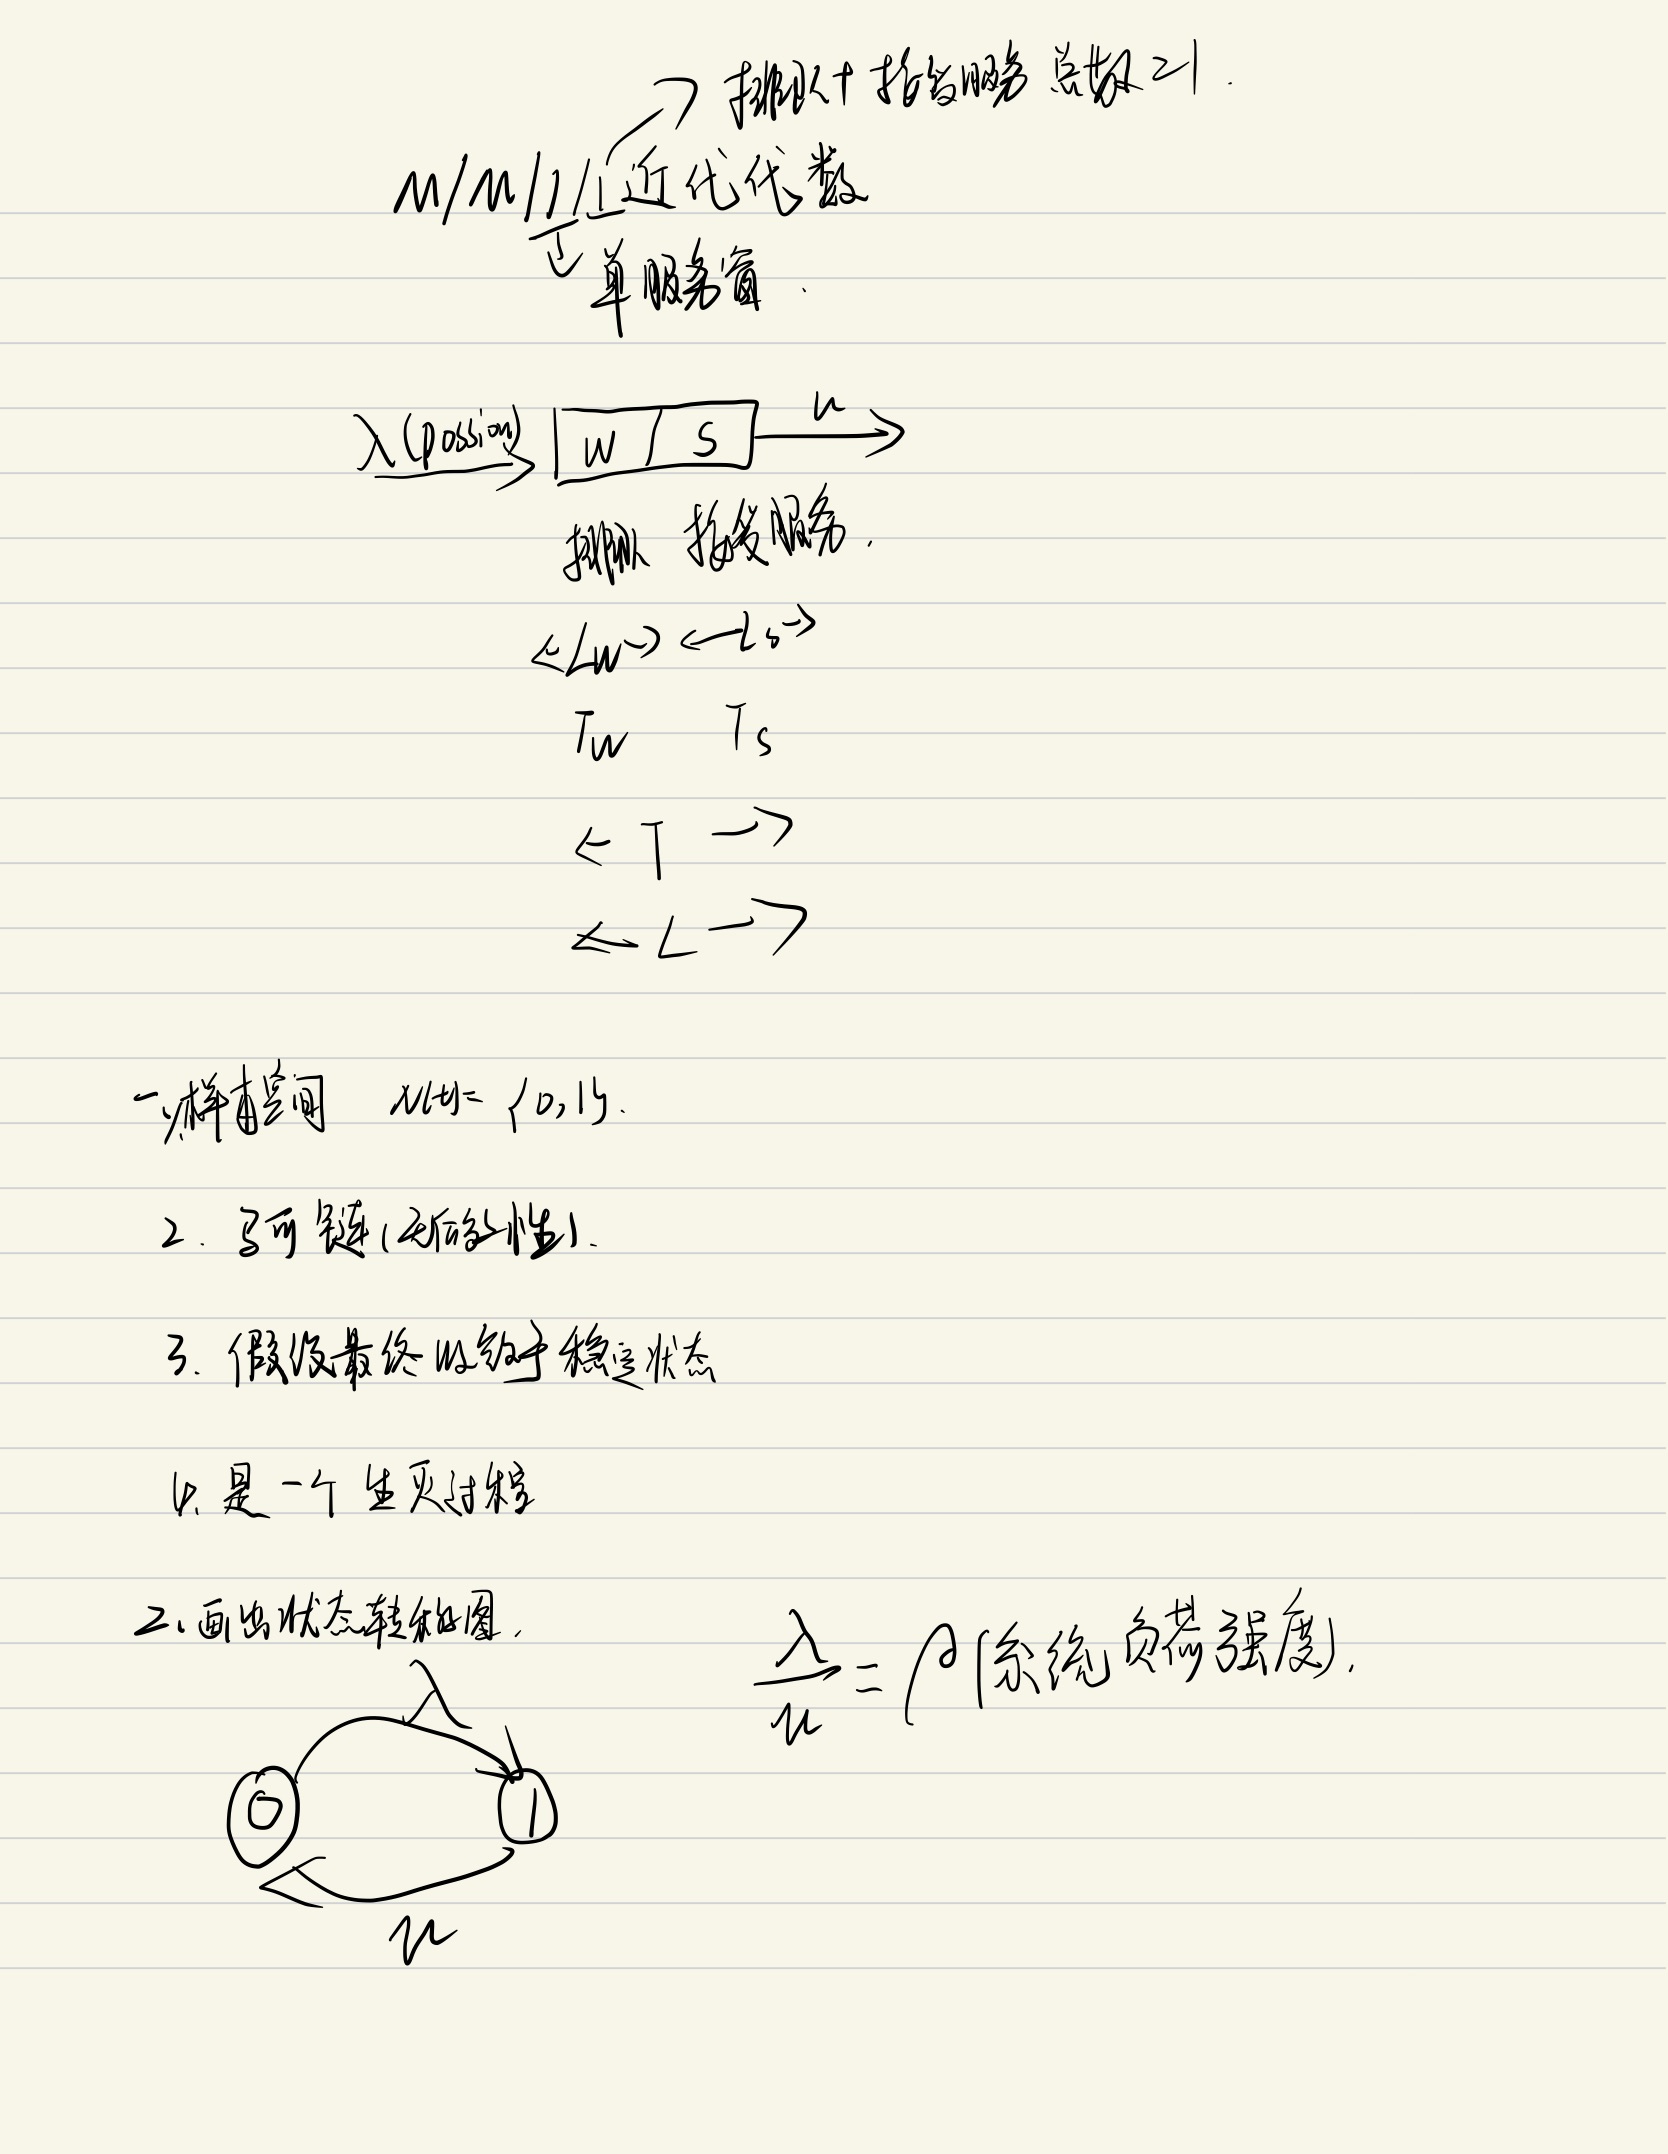 排队+接受服务总数=1.
M/M/1/1近代代数
单服务窗.
λ(possion) W S u
排队 接受服务.
Lw Ls
Tw Ts
T
L
一、样本空间 N(t)={0,1}.
2. 马可链(无后效性).
3. 假设最终收敛于稳定状态
4. 是一个生灭过程
2、画出状态转移图.
λ/u=ρ(系统负荷强度).
λ
0 1
u